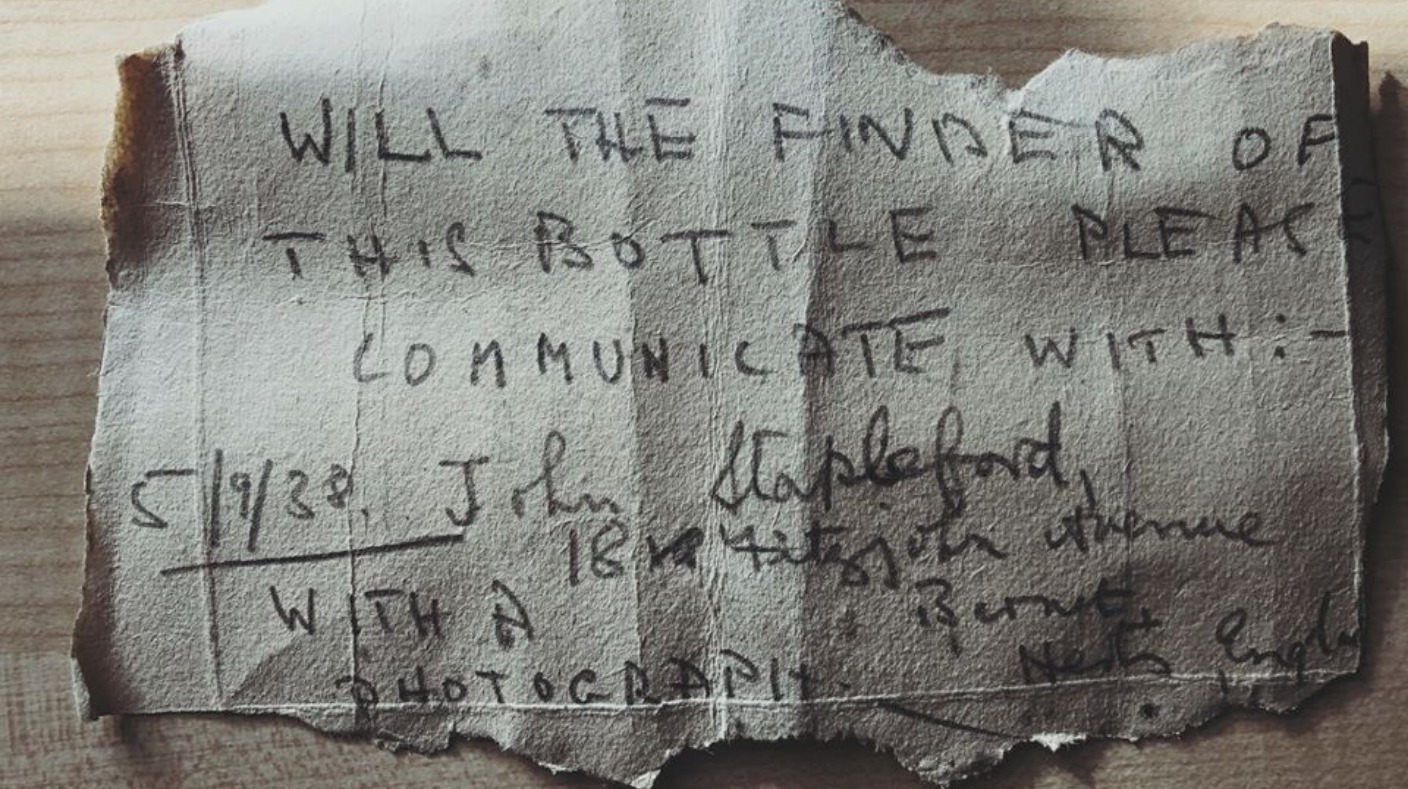 WILL THE FINDER OF
THIS BOTTLE PLEASE
COMMUNICATE WITH:-
5/9/38. John Stapleford,
18 Fitzjohn Avenue
WITH A Barnet,
PHOTOGRAPH. Herts Engla